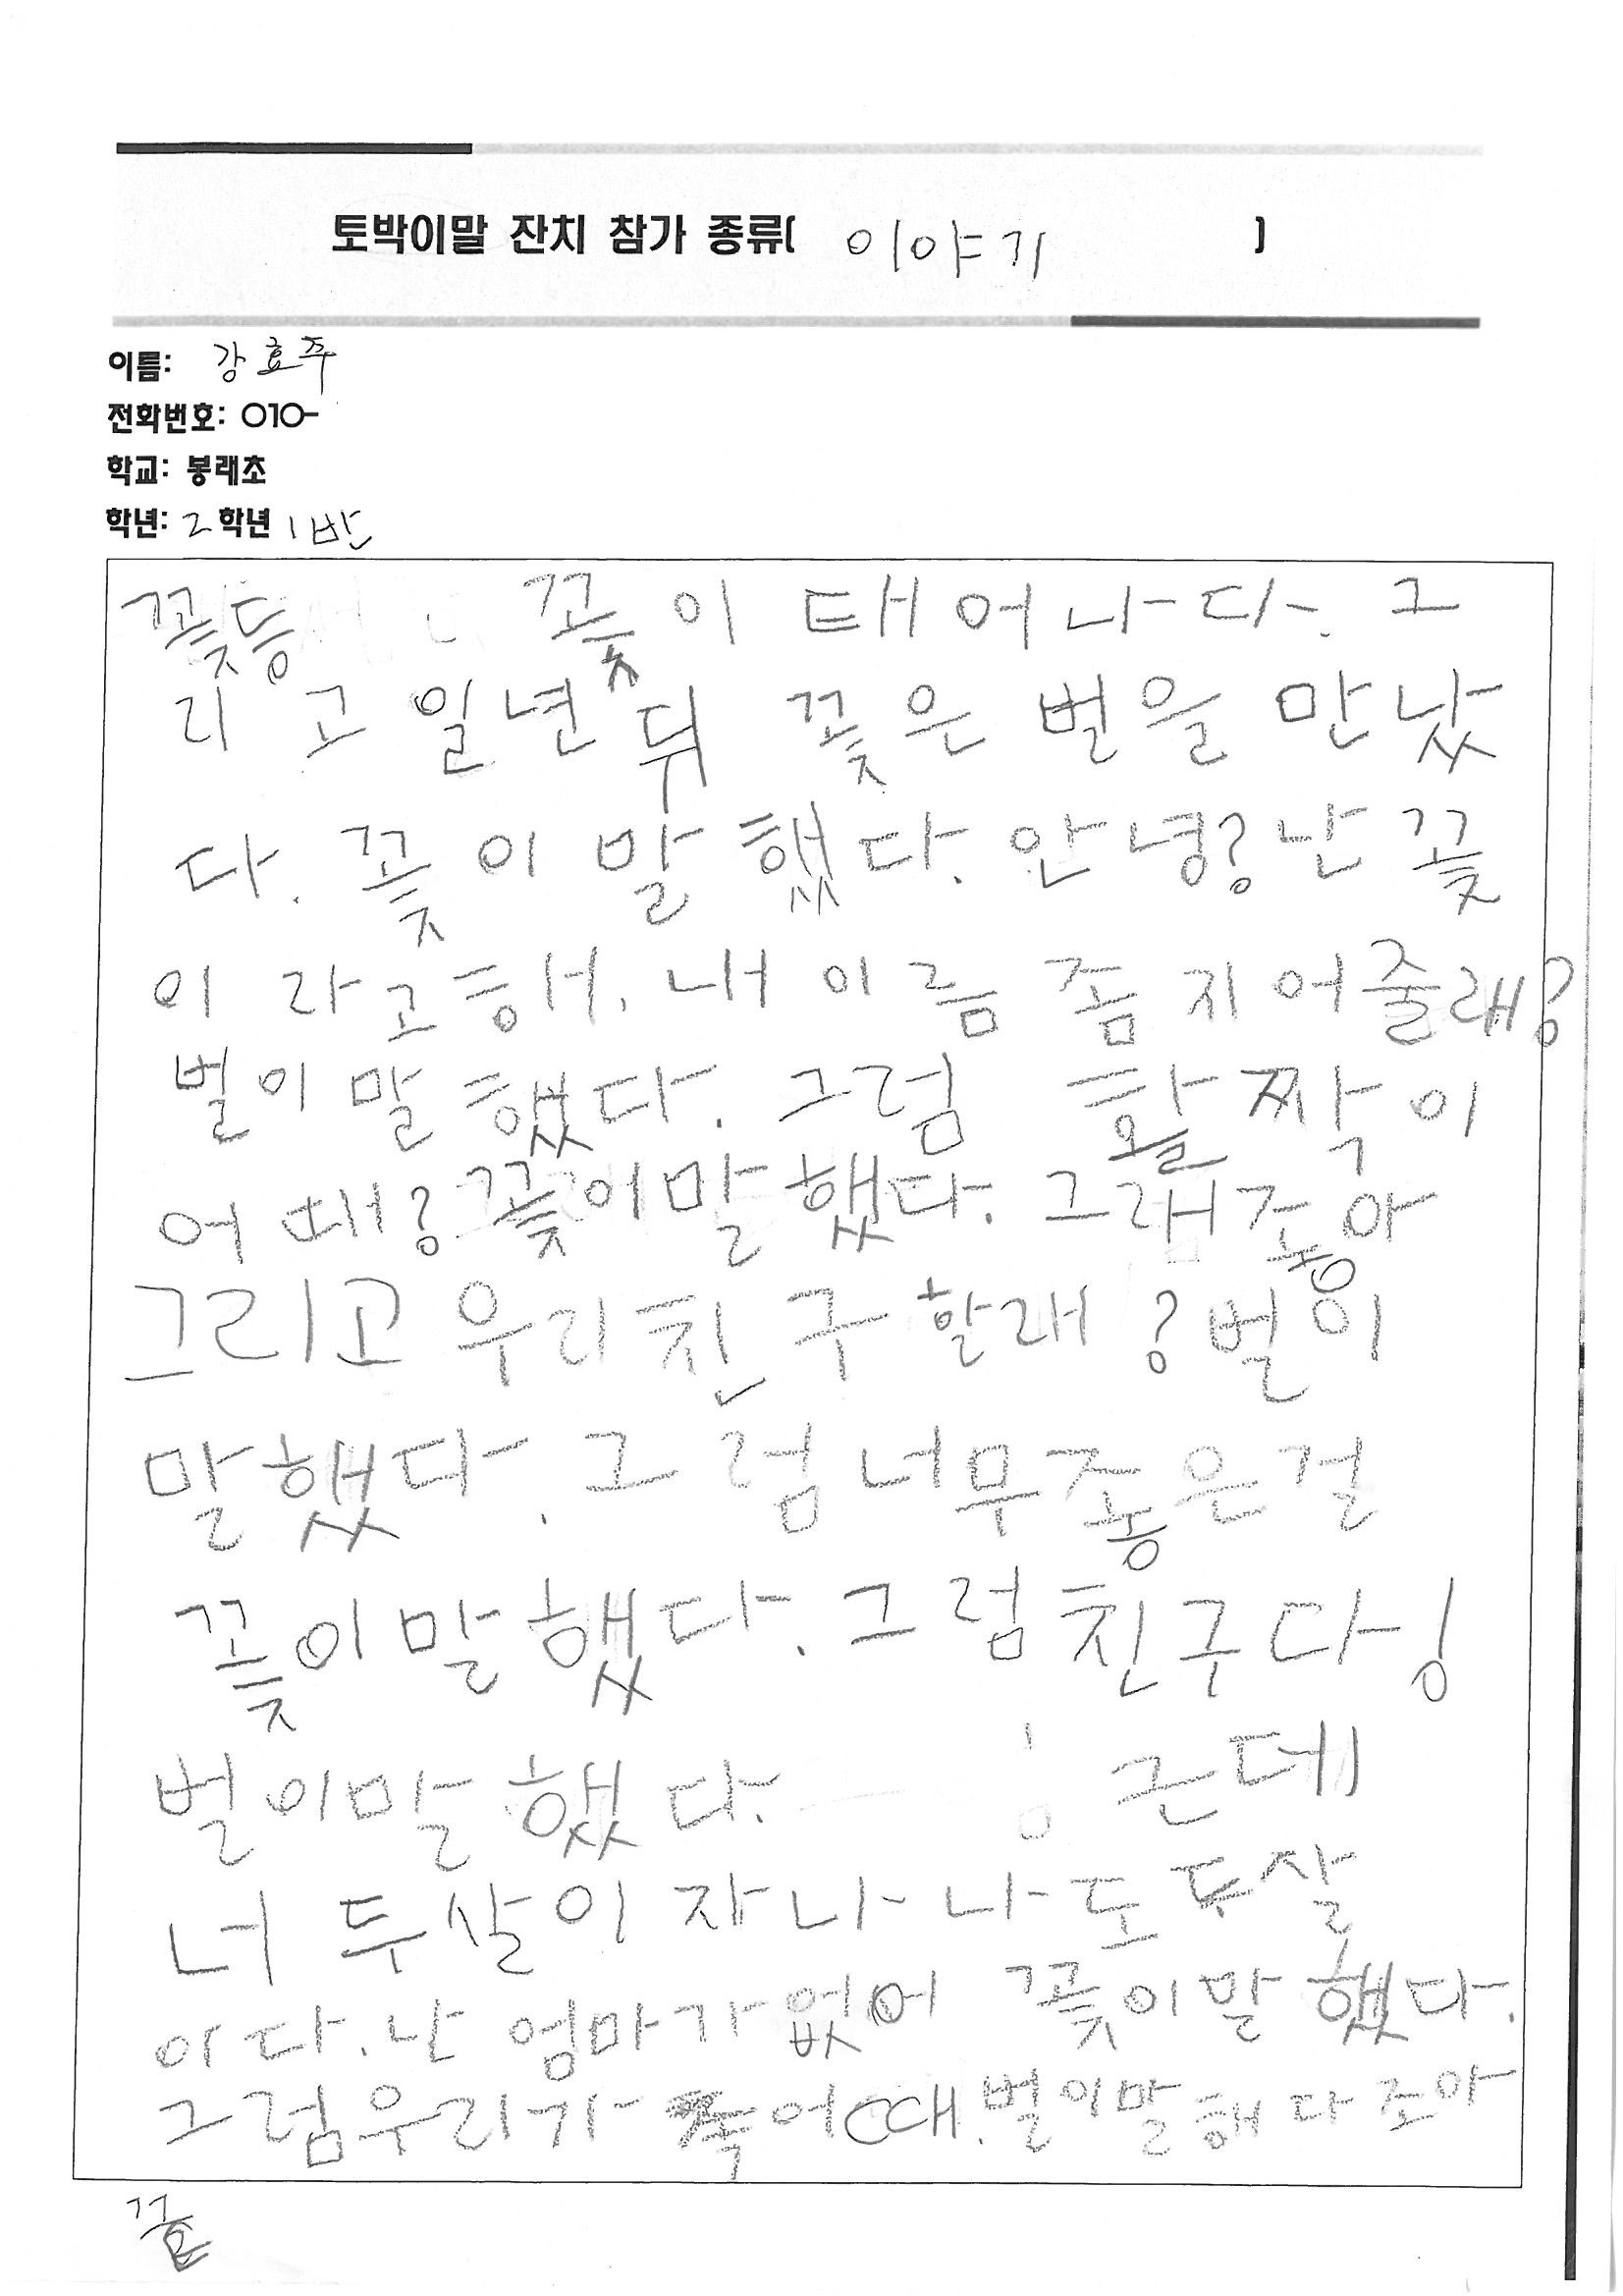 토박이말 잔치 참가 종류( 이야기 )
이름: 강효주
전화번호: 010-
학교: 봉래초
학년: 2학년 1반
꽃등 꽃이 태어나다. 그
리고 일년 뒤 꽃은 벌을 만났
다. 꽃이 말했다. 안녕? 난 꽃
이라고해. 내 이름 좀 지어줄래?
벌이 말했다. 그럼 활짝이
어때? 꽃이말했다. 그래좋아
그리고 우리친구할래? 벌이
말했다. 그럼너무좋은걸
꽃이말했다. 그럼친구다!
벌이말했다. 근데
너 두살이자나 나도두살
이다. 난 엄마가없어 꽃이말했다.
그럼우리가족어때. 벌이말해다조아
끝